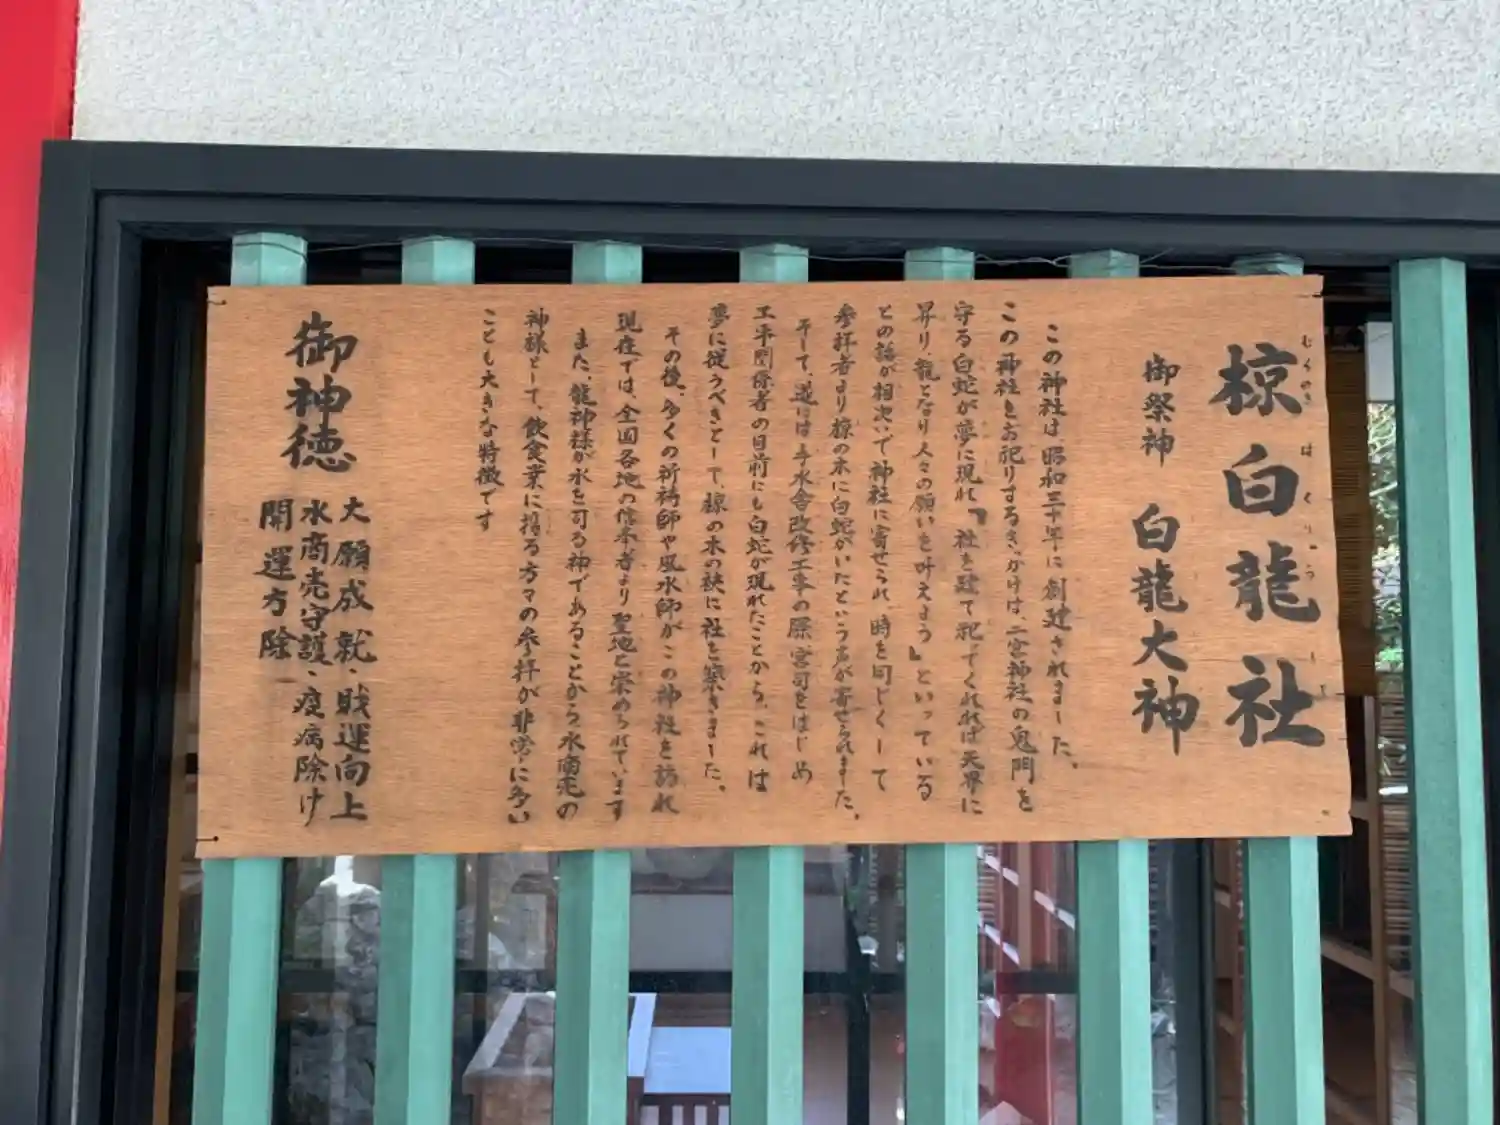 椋白龍社
むくのき はくりゅうしゃ
御祭神 白龍大神
この神社は昭和三十年に創建されました。
この神社をお祀りするきっかけは、二宮神社の鬼門を
守る白蛇が夢に現れ『社を建て祀ってくれれば天界に
昇り、龍となり人々の願いを叶えよう』といっている
との話が相次いで神社に寄せられ、時を同じくして
参拝者より椋の木に白蛇がいたという声が寄せられました。
そして、遂には手水舎改修工事の際、宮司をはじめ
工事関係者の目前にも白蛇が現れたことから、これは
夢に従うべきとして、椋の木の袂に社を築きました。
その後、多くの祈祷師や風水師がこの神社を訪れ
現在では、全国各地の信奉者より聖地と崇められています
また、龍神様が水を司る神であることから水商売の
神様として、飲食業に携る方々の参拝が非常に多い
ことも大きな特徴です
御神徳
大願成就・財運向上
水商売守護・疫病除け
開運方除